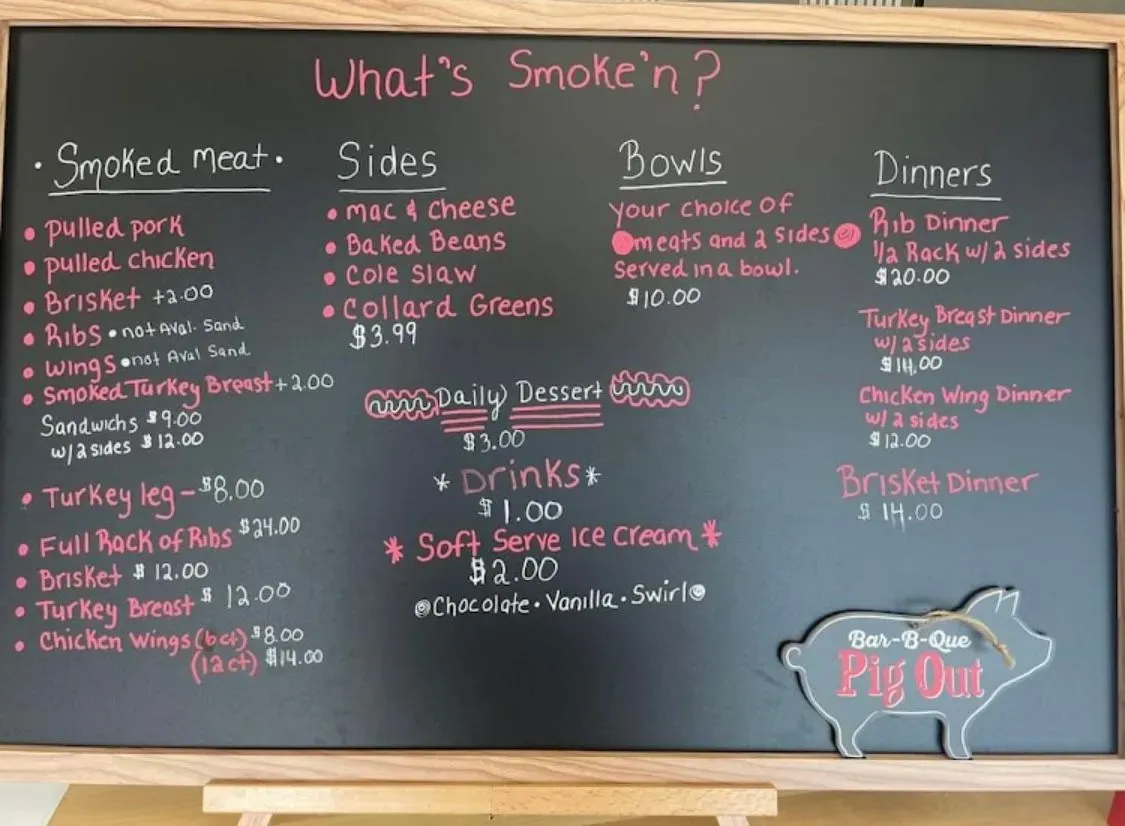 What's Smoke'n?
• Smoked meat •
• pulled pork
• pulled chicken
• Brisket +2.00
• Ribs • not Aval. Sand
• wings • not Aval Sand
• Smoked Turkey Breast +2.00
Sandwichs $9.00
w/2 sides $12.00
• Turkey leg - $8.00
• Full Rack of Ribs $24.00
• Brisket $12.00
• Turkey Breast $12.00
• Chicken Wings (6ct) $8.00
(12ct) $14.00
Sides
• mac & cheese
• Baked Beans
• Cole Slaw
• Collard Greens
$3.99
Daily Dessert
$3.00
* Drinks *
$1.00
* Soft Serve Ice Cream *
$2.00
Chocolate • Vanilla • Swirl
Bowls
your choice of
meats and 2 sides
served in a bowl.
$10.00
Dinners
Rib Dinner
1/2 Rack w/2 sides
$20.00
Turkey Breast Dinner
w/2 sides
$14.00
Chicken Wing Dinner
w/2 sides
$12.00
Brisket Dinner
$14.00
Bar-B-Que
Pig Out